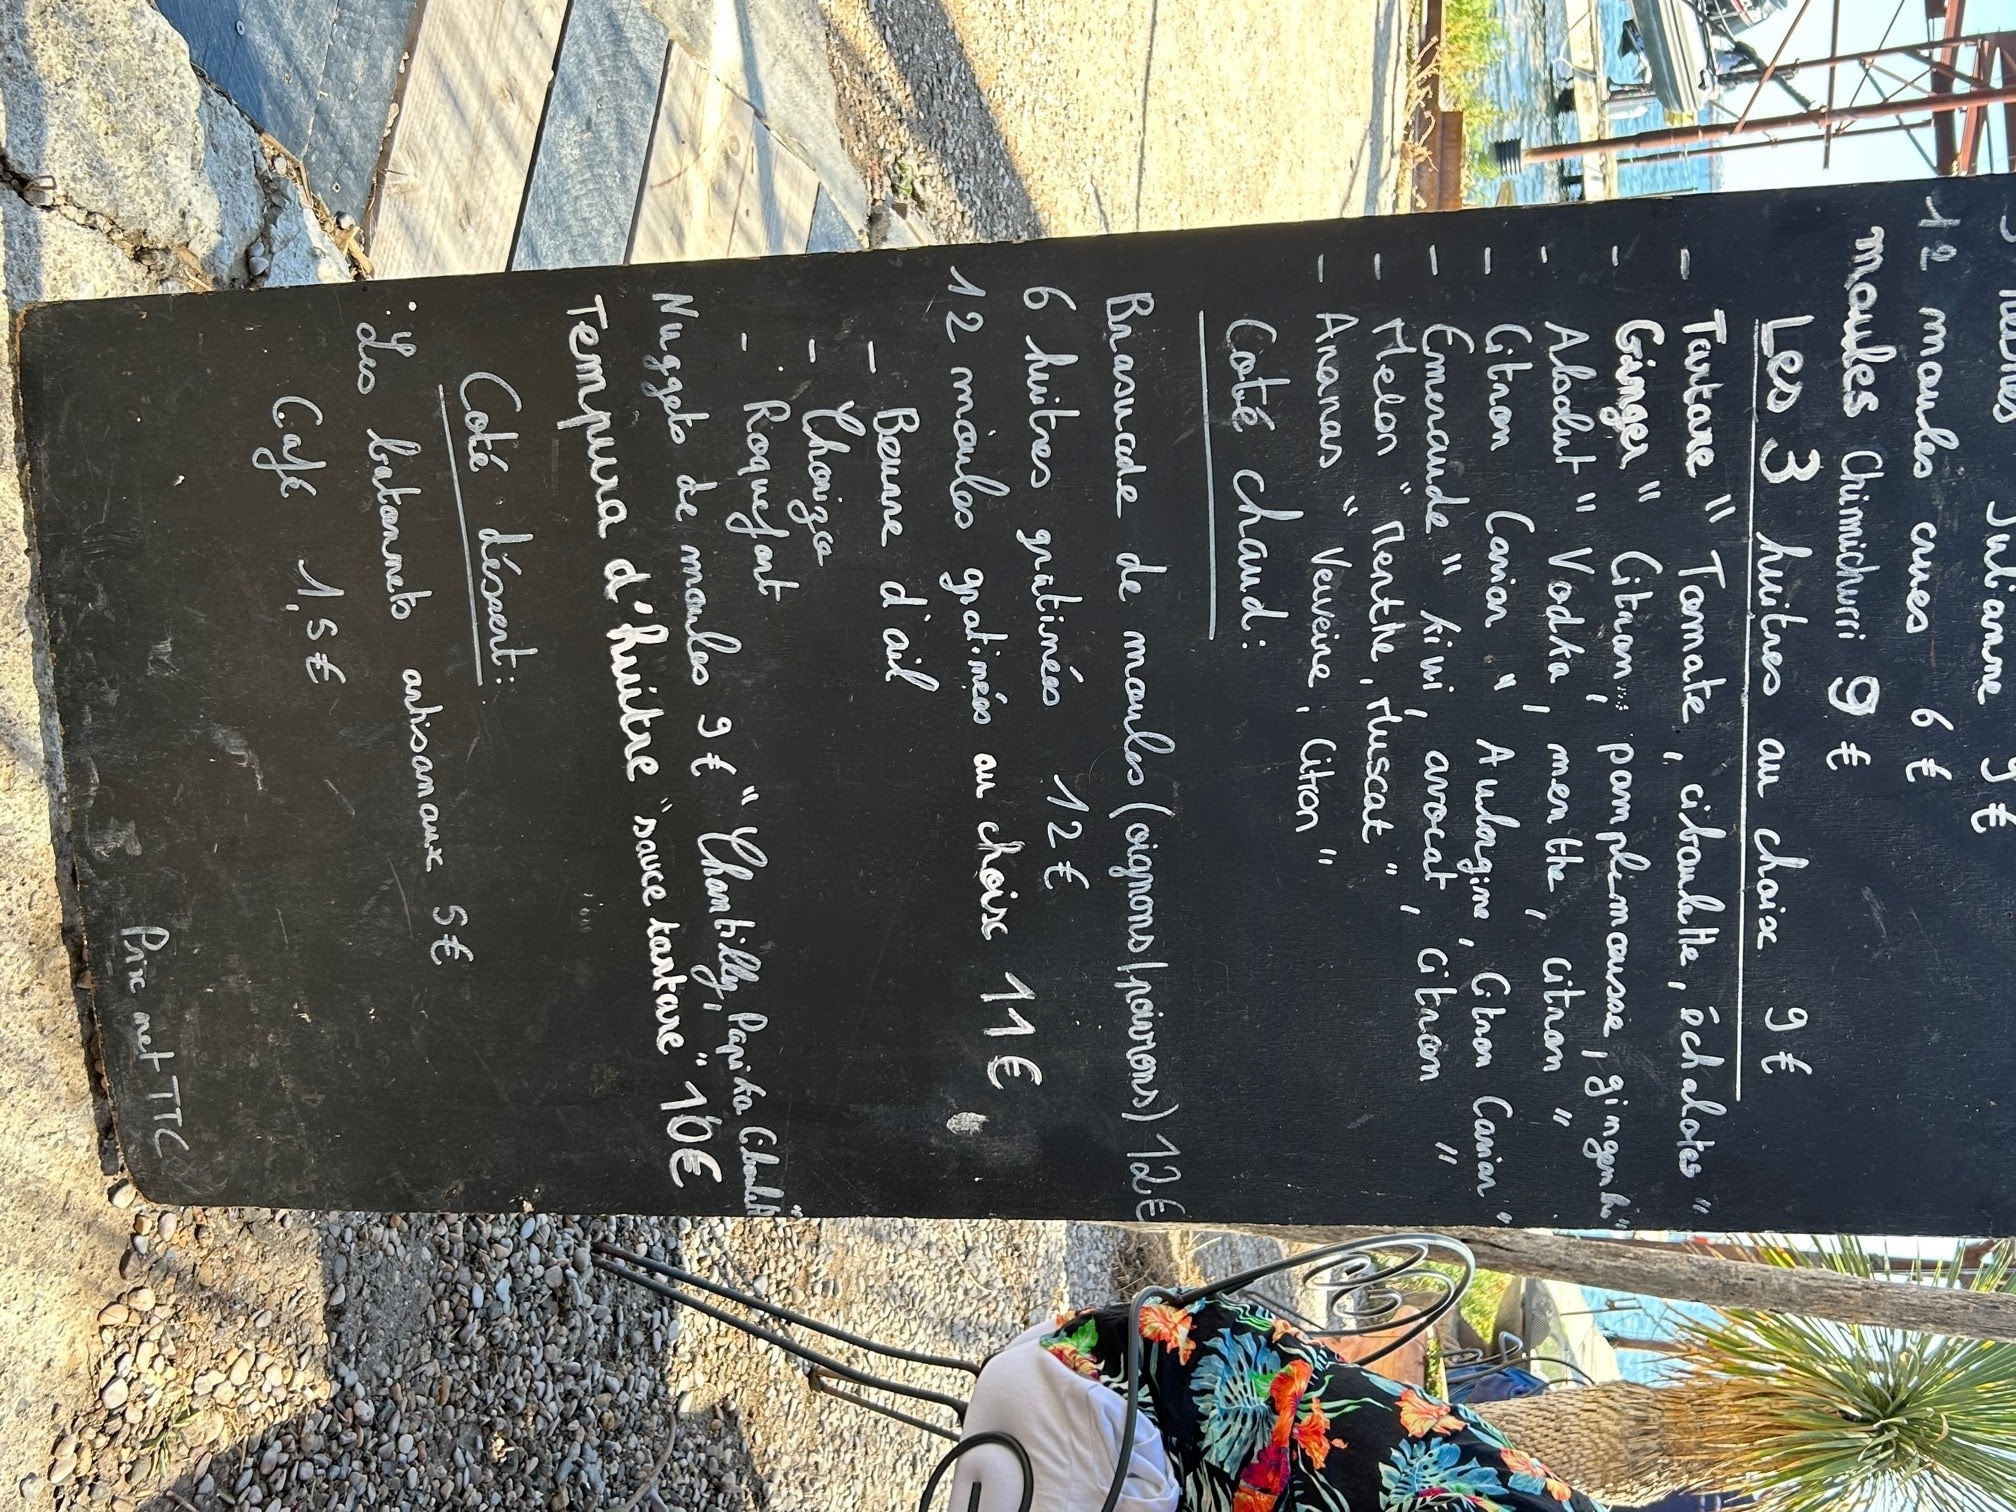 Julianne 9€
12 moules crues 6€
moules Chimichurri 9€
Les 3 huitres au choix 9€
- Tartare " Tomate, ciboulette, échalotes "
- Ginger " Citron, pamplemousse, gingembre "
- Absolut " Vodka, menthe, citron "
- Citron Caviar " Aubergine, Citron Caviar "
- Emeraude " kiwi, avocat, citron "
- Melon " Menthe, Muscat "
- Ananas " Verveine, Citron "
Coté chaud :
Brasucade de moules (oignons/poivrons) 12€
6 huitres gratinées 12€
12 moules gratinées au choix 11€
- Beurre d'ail
- Chorizo
- Roquefort
Nuggets de moules 9€ " Chantilly, Paprika Ciboulette "
Tempura d'huître "sauce tartare" 10€
Coté désert :
. Les batonnets artisanaux 5€
Café 1,5€
Prix net TTC